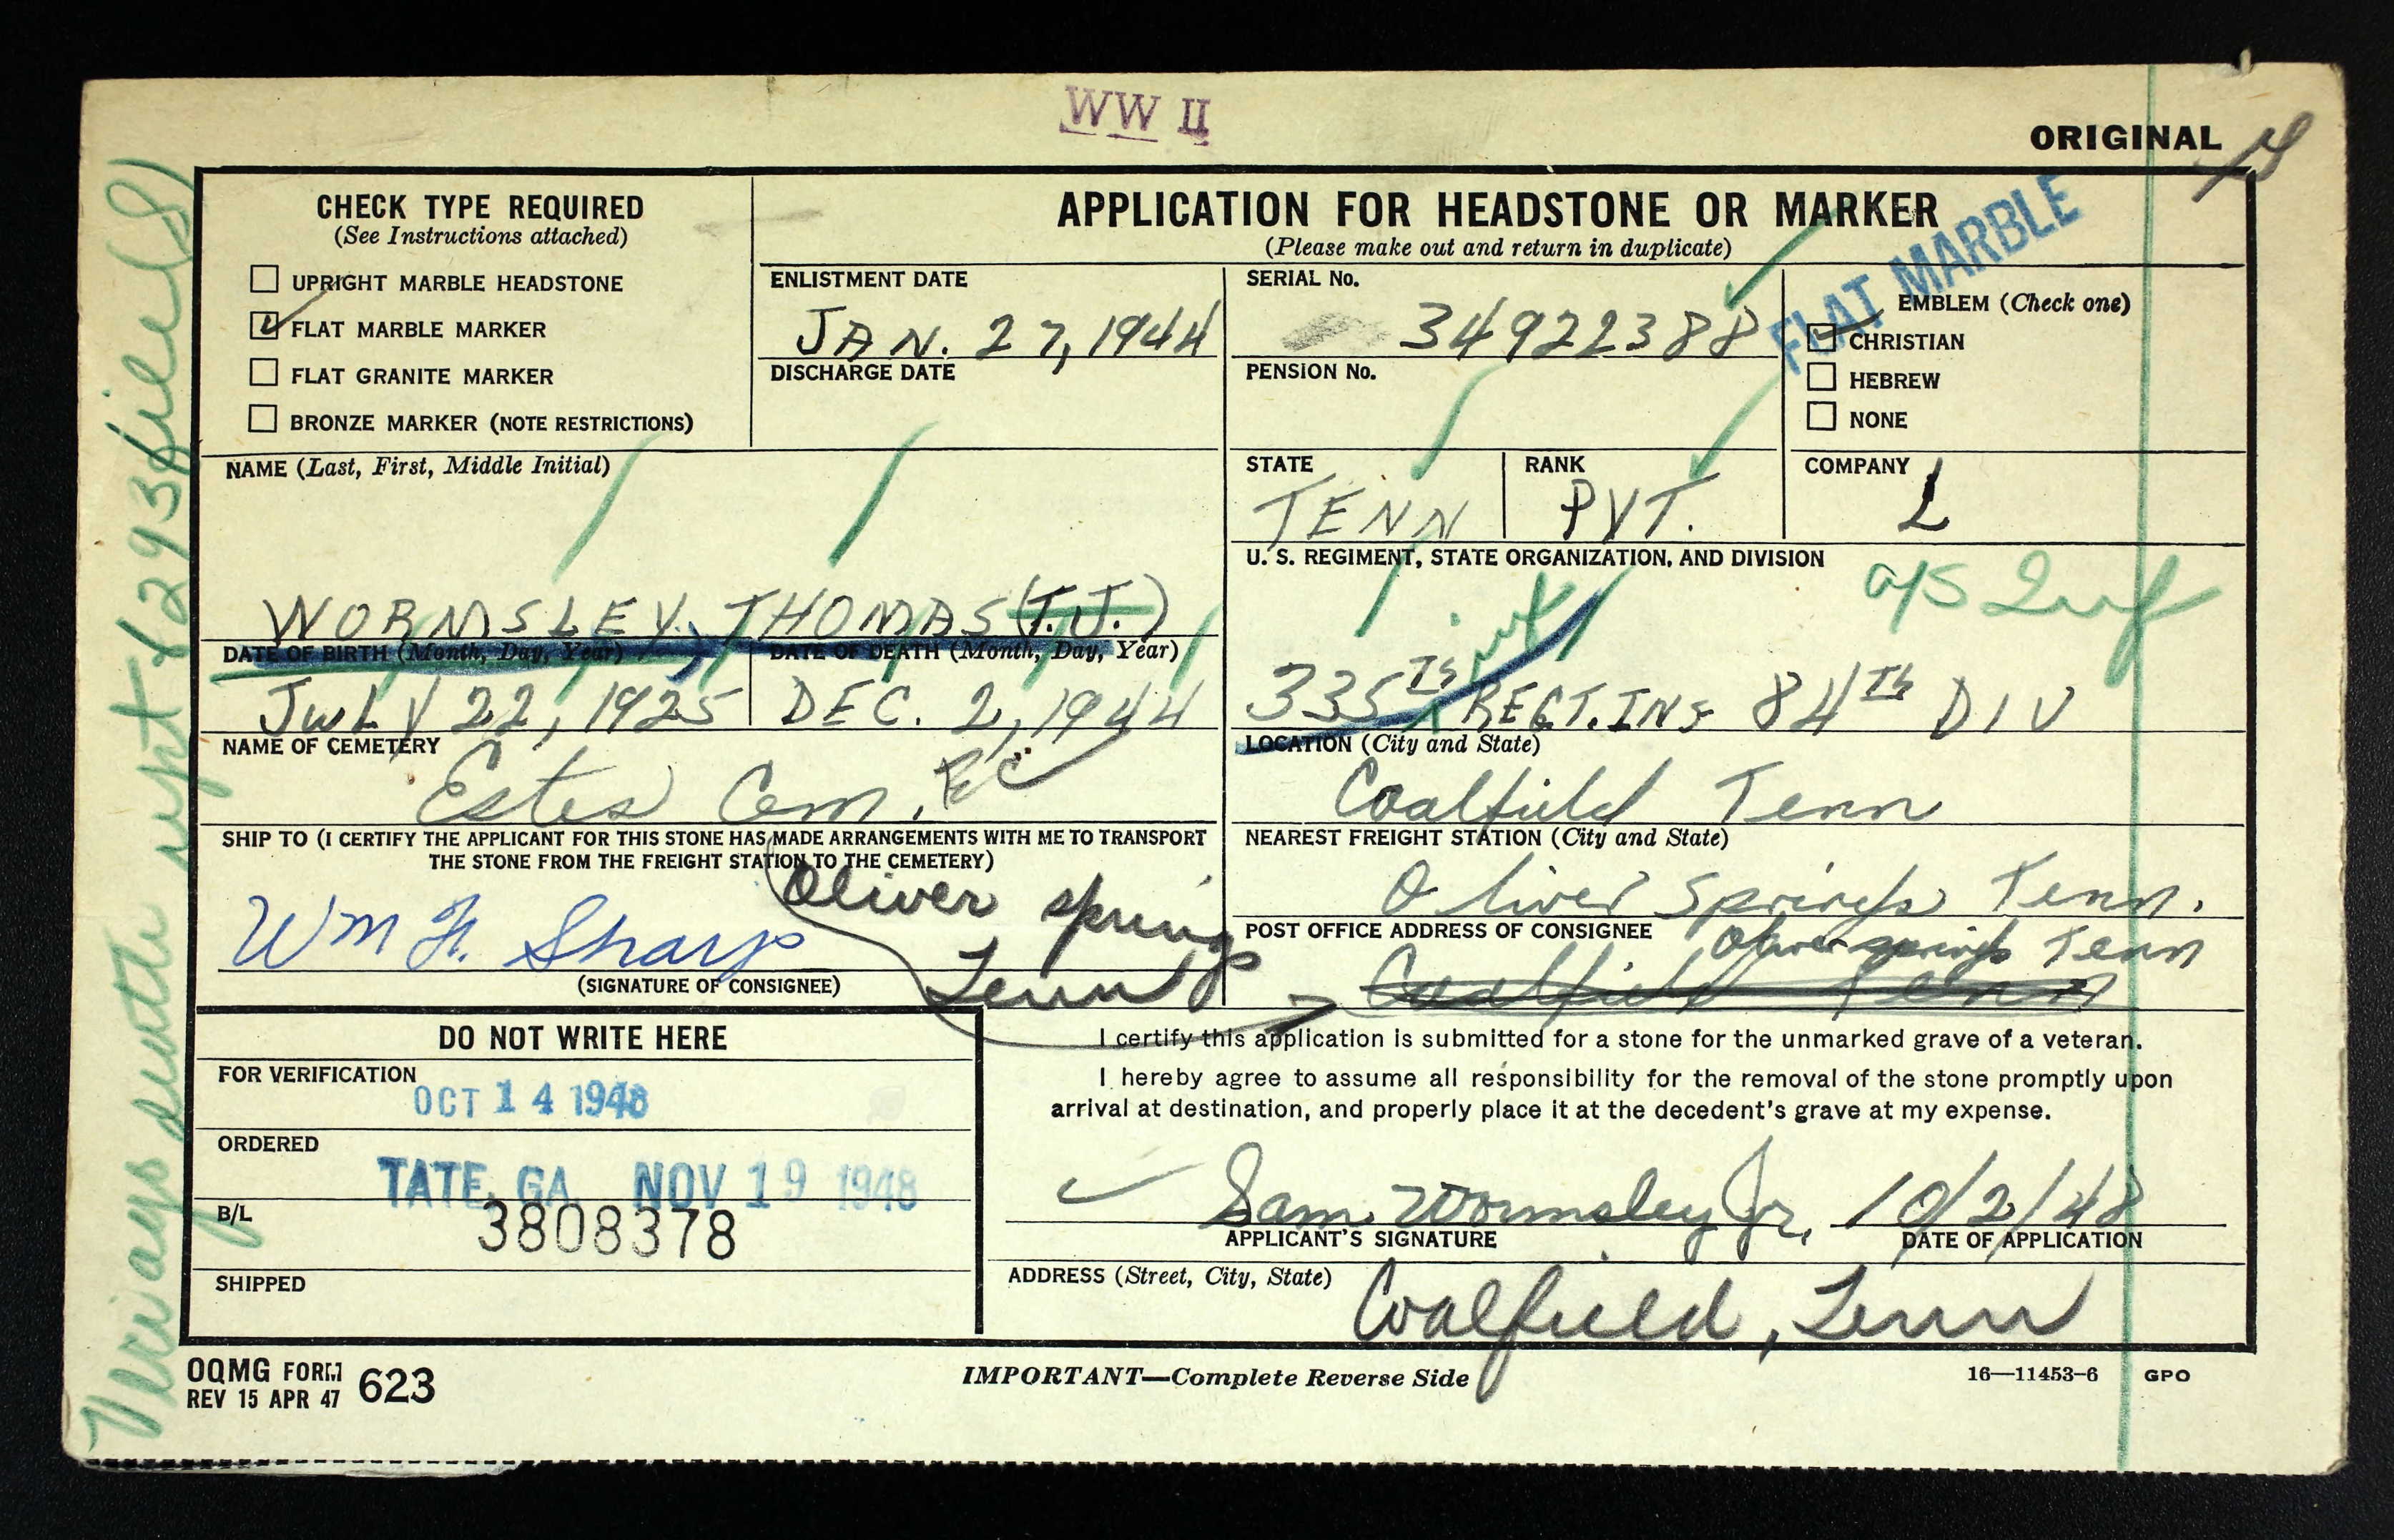 WW II
ORIGINAL
CHECK TYPE REQUIRED
(See Instructions attached)
UPRIGHT MARBLE HEADSTONE
FLAT MARBLE MARKER
FLAT GRANITE MARKER
BRONZE MARKER (NOTE RESTRICTIONS)
APPLICATION FOR HEADSTONE OR MARKER
(Please make out and return in duplicate)
FLAT MARBLE
ENLISTMENT DATE
JAN. 27, 1944
DISCHARGE DATE
SERIAL No.
34922388
PENSION No.
EMBLEM (Check one)
CHRISTIAN
HEBREW
NONE
NAME (Last, First, Middle Initial)
WORMSLEY, THOMAS (T.J.)
STATE
TENN
RANK
PVT.
COMPANY
L
U. S. REGIMENT, STATE ORGANIZATION, AND DIVISION
335TH REGT. INF 84TH DIV
DATE OF BIRTH (Month, Day, Year)
JULY 22, 1925
DATE OF DEATH (Month, Day, Year)
DEC. 2, 1944
NAME OF CEMETERY
Estes Cem.
LOCATION (City and State)
Coalfield Tenn
SHIP TO (I CERTIFY THE APPLICANT FOR THIS STONE HAS MADE ARRANGEMENTS WITH ME TO TRANSPORT
THE STONE FROM THE FREIGHT STATION TO THE CEMETERY)
Wm H. Sharp
Oliver springs
Tenn
(SIGNATURE OF CONSIGNEE)
NEAREST FREIGHT STATION (City and State)
Oliver Springs Tenn.
POST OFFICE ADDRESS OF CONSIGNEE
Oliver springs Tenn
Coalfield Tenn
DO NOT WRITE HERE
FOR VERIFICATION
OCT 14 1948
ORDERED
TATE, GA. NOV 19 1948
B/L
3808378
SHIPPED
I certify this application is submitted for a stone for the unmarked grave of a veteran.
I hereby agree to assume all responsibility for the removal of the stone promptly upon
arrival at destination, and properly place it at the decedent's grave at my expense.
Sam Wormsley Jr. 10/2/48
APPLICANT'S SIGNATURE
DATE OF APPLICATION
ADDRESS (Street, City, State)
Coalfield, Tenn
OQMG FORM
REV 15 APR 47
623
IMPORTANT—Complete Reverse Side
16—11453-6
GPO